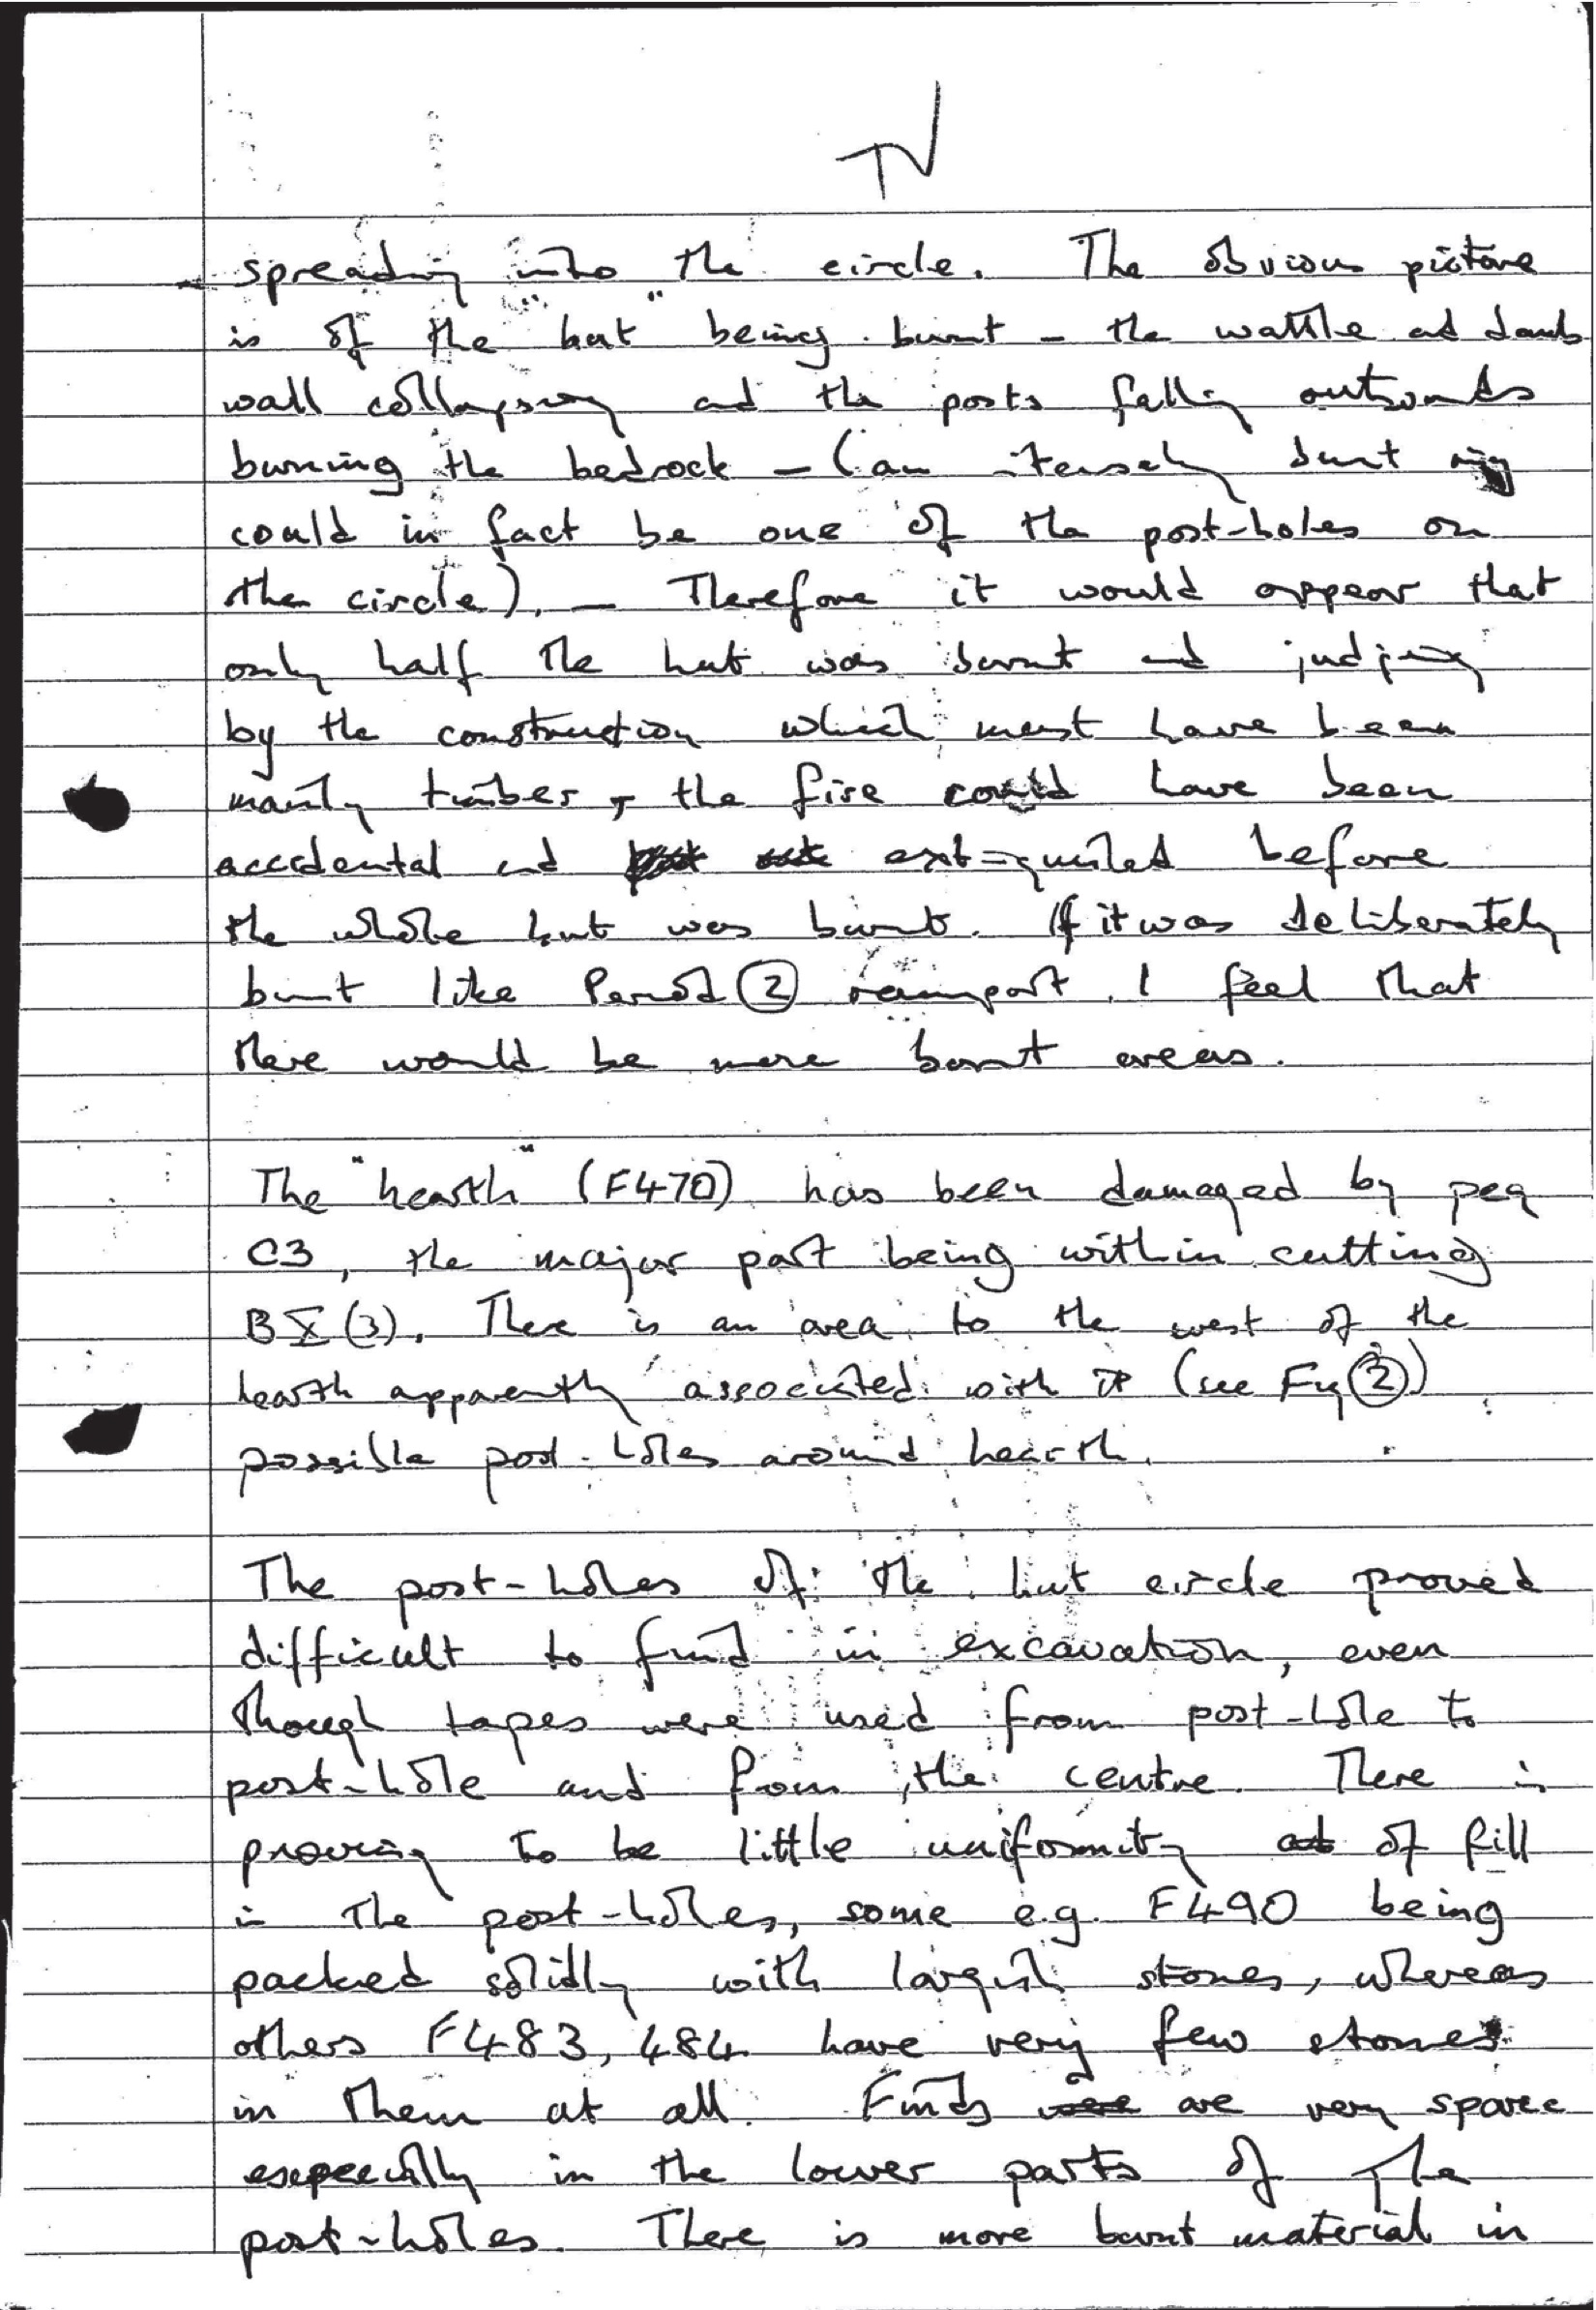 IV
spreading into the circle. The obvious picture
is of the "hut" being burnt - the wattle and daub
wall collapsing and the posts falling outwards
burning the bedrock - (an intensely burnt ring
could in fact be one of the post-holes on
the circle). - Therefore it would appear that
only half the hut was burnt and judging
by the construction which must have been
mainly timber, the fire could have been
accidental and extinguished before
the whole hut was burnt. If it was deliberately
burnt like Period ② rampart, I feel that
there would be more burnt areas.
The "hearth" (F470) has been damaged by peg
C3, the major part being within cutting
BX(3). There is an area to the west of the
hearth apparently associated with it (see Fig ②)
possible post-holes around hearth.
The post-holes of the hut circle proved
difficult to find in excavation, even
though tapes were used from post-hole to
post-hole and from the centre. There is
proving to be little uniformity of fill
in the post-holes, some e.g. F490 being
packed solidly with largish stones, whereas
others F483, 484 have very few stones
in them at all. Finds are very sparce
esepecially in the lower parts of the
post-holes. There is more burnt material in